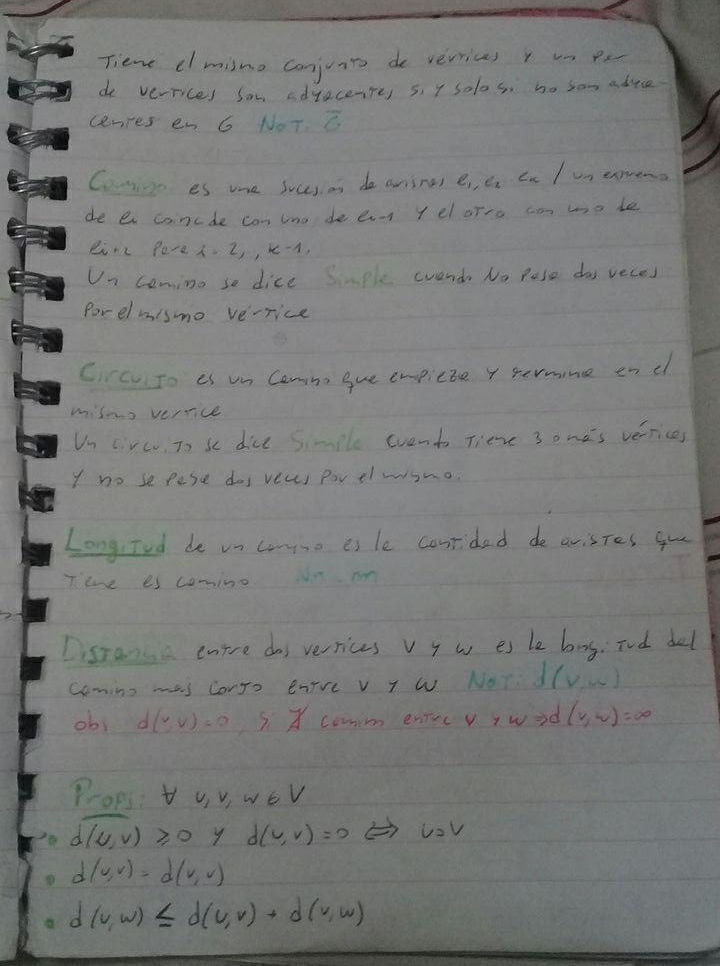 Tiene el mismo conjunto de vértices y un par
de vertices son adyacentes si y solo si no son adya-
centes en G Not. G̅
Camino es una sucesión de aristas e₁, e₂ eₖ / un extremo
de eᵢ coincide con uno de eᵢ₋₁ y el otro con uno de
para i = 2, , k-1.
Un camino se dice Simple cuando No pasa dos veces
por el mismo vértice
Circuito es un camino que empieza y termina en el
mismo vertice
Un circuito se dice Simple cuando tiene 3 o más vértices
y no se pase dos veces por el mismo.
Longitud de un camino es la cantidad de aristas que
tiene es camino
Distancia entre dos vertices v y w es la longitud del
camino mas corto entre v y w Not: d(v,w)
obs d(v,v)=0, Si ∄ camino entre v y w ⇒ d(v,w)=∞
Props: ∀ u, v, w ∈ V
• d(u,v) ≥ 0 y d(u,v)=0 ⇔ u=v
• d(u,v) = d(v,u)
• d(u,w) ≤ d(u,v) + d(v,w)